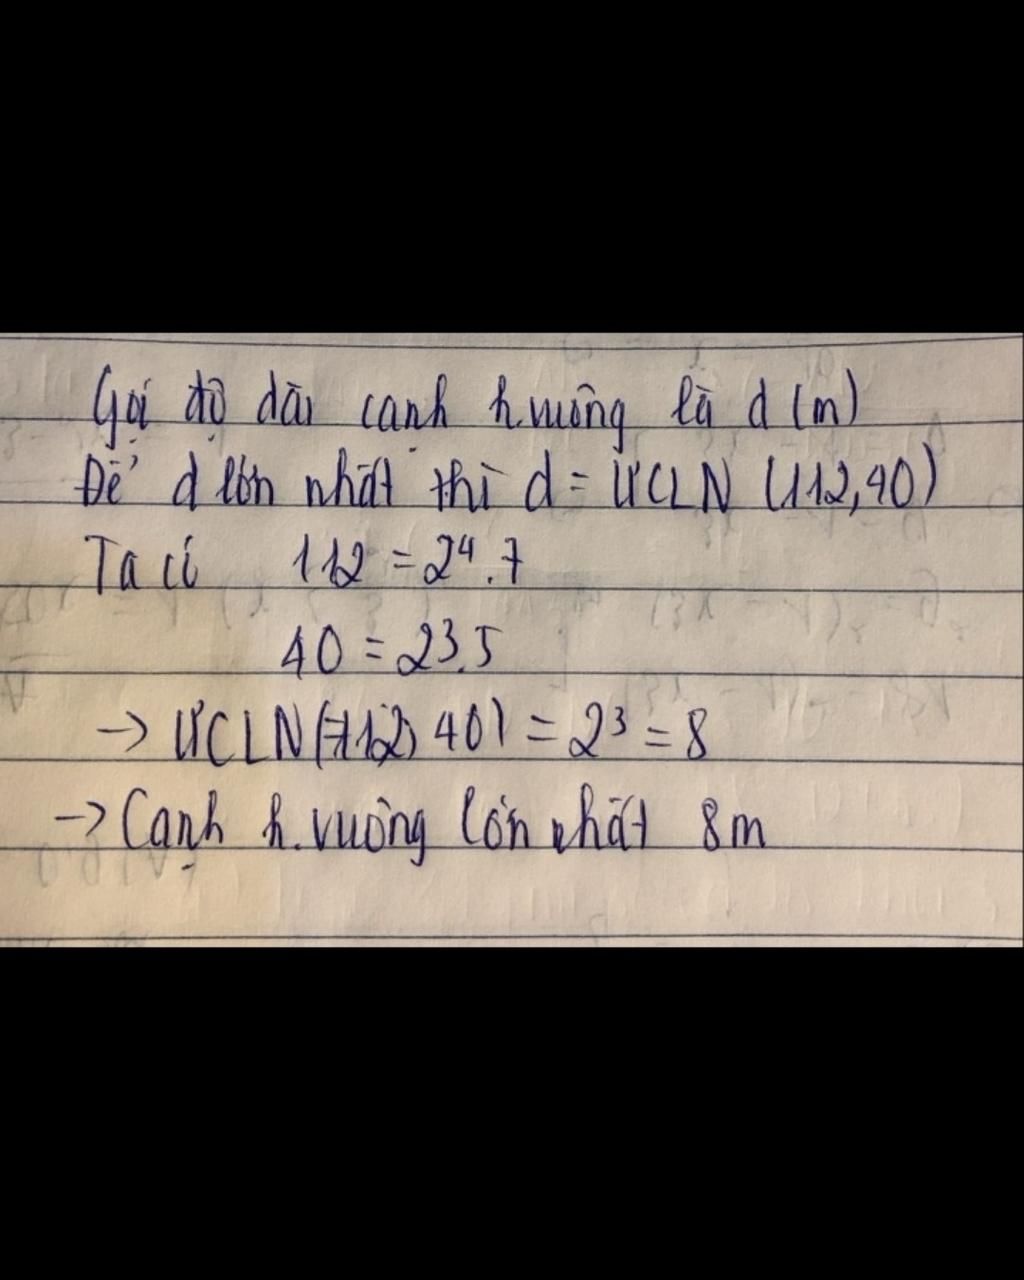 Gọi độ dài cạnh h.vuông là d (m)
Để d lớn nhất thì d = ƯCLN (112,40)
Ta có 112 = 2⁴.7
40 = 23.5
→ ƯCLN(112, 40) = 2³ = 8
→ Cạnh h.vuông lớn nhất 8m